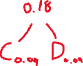 0.18
C0.09 D0.09